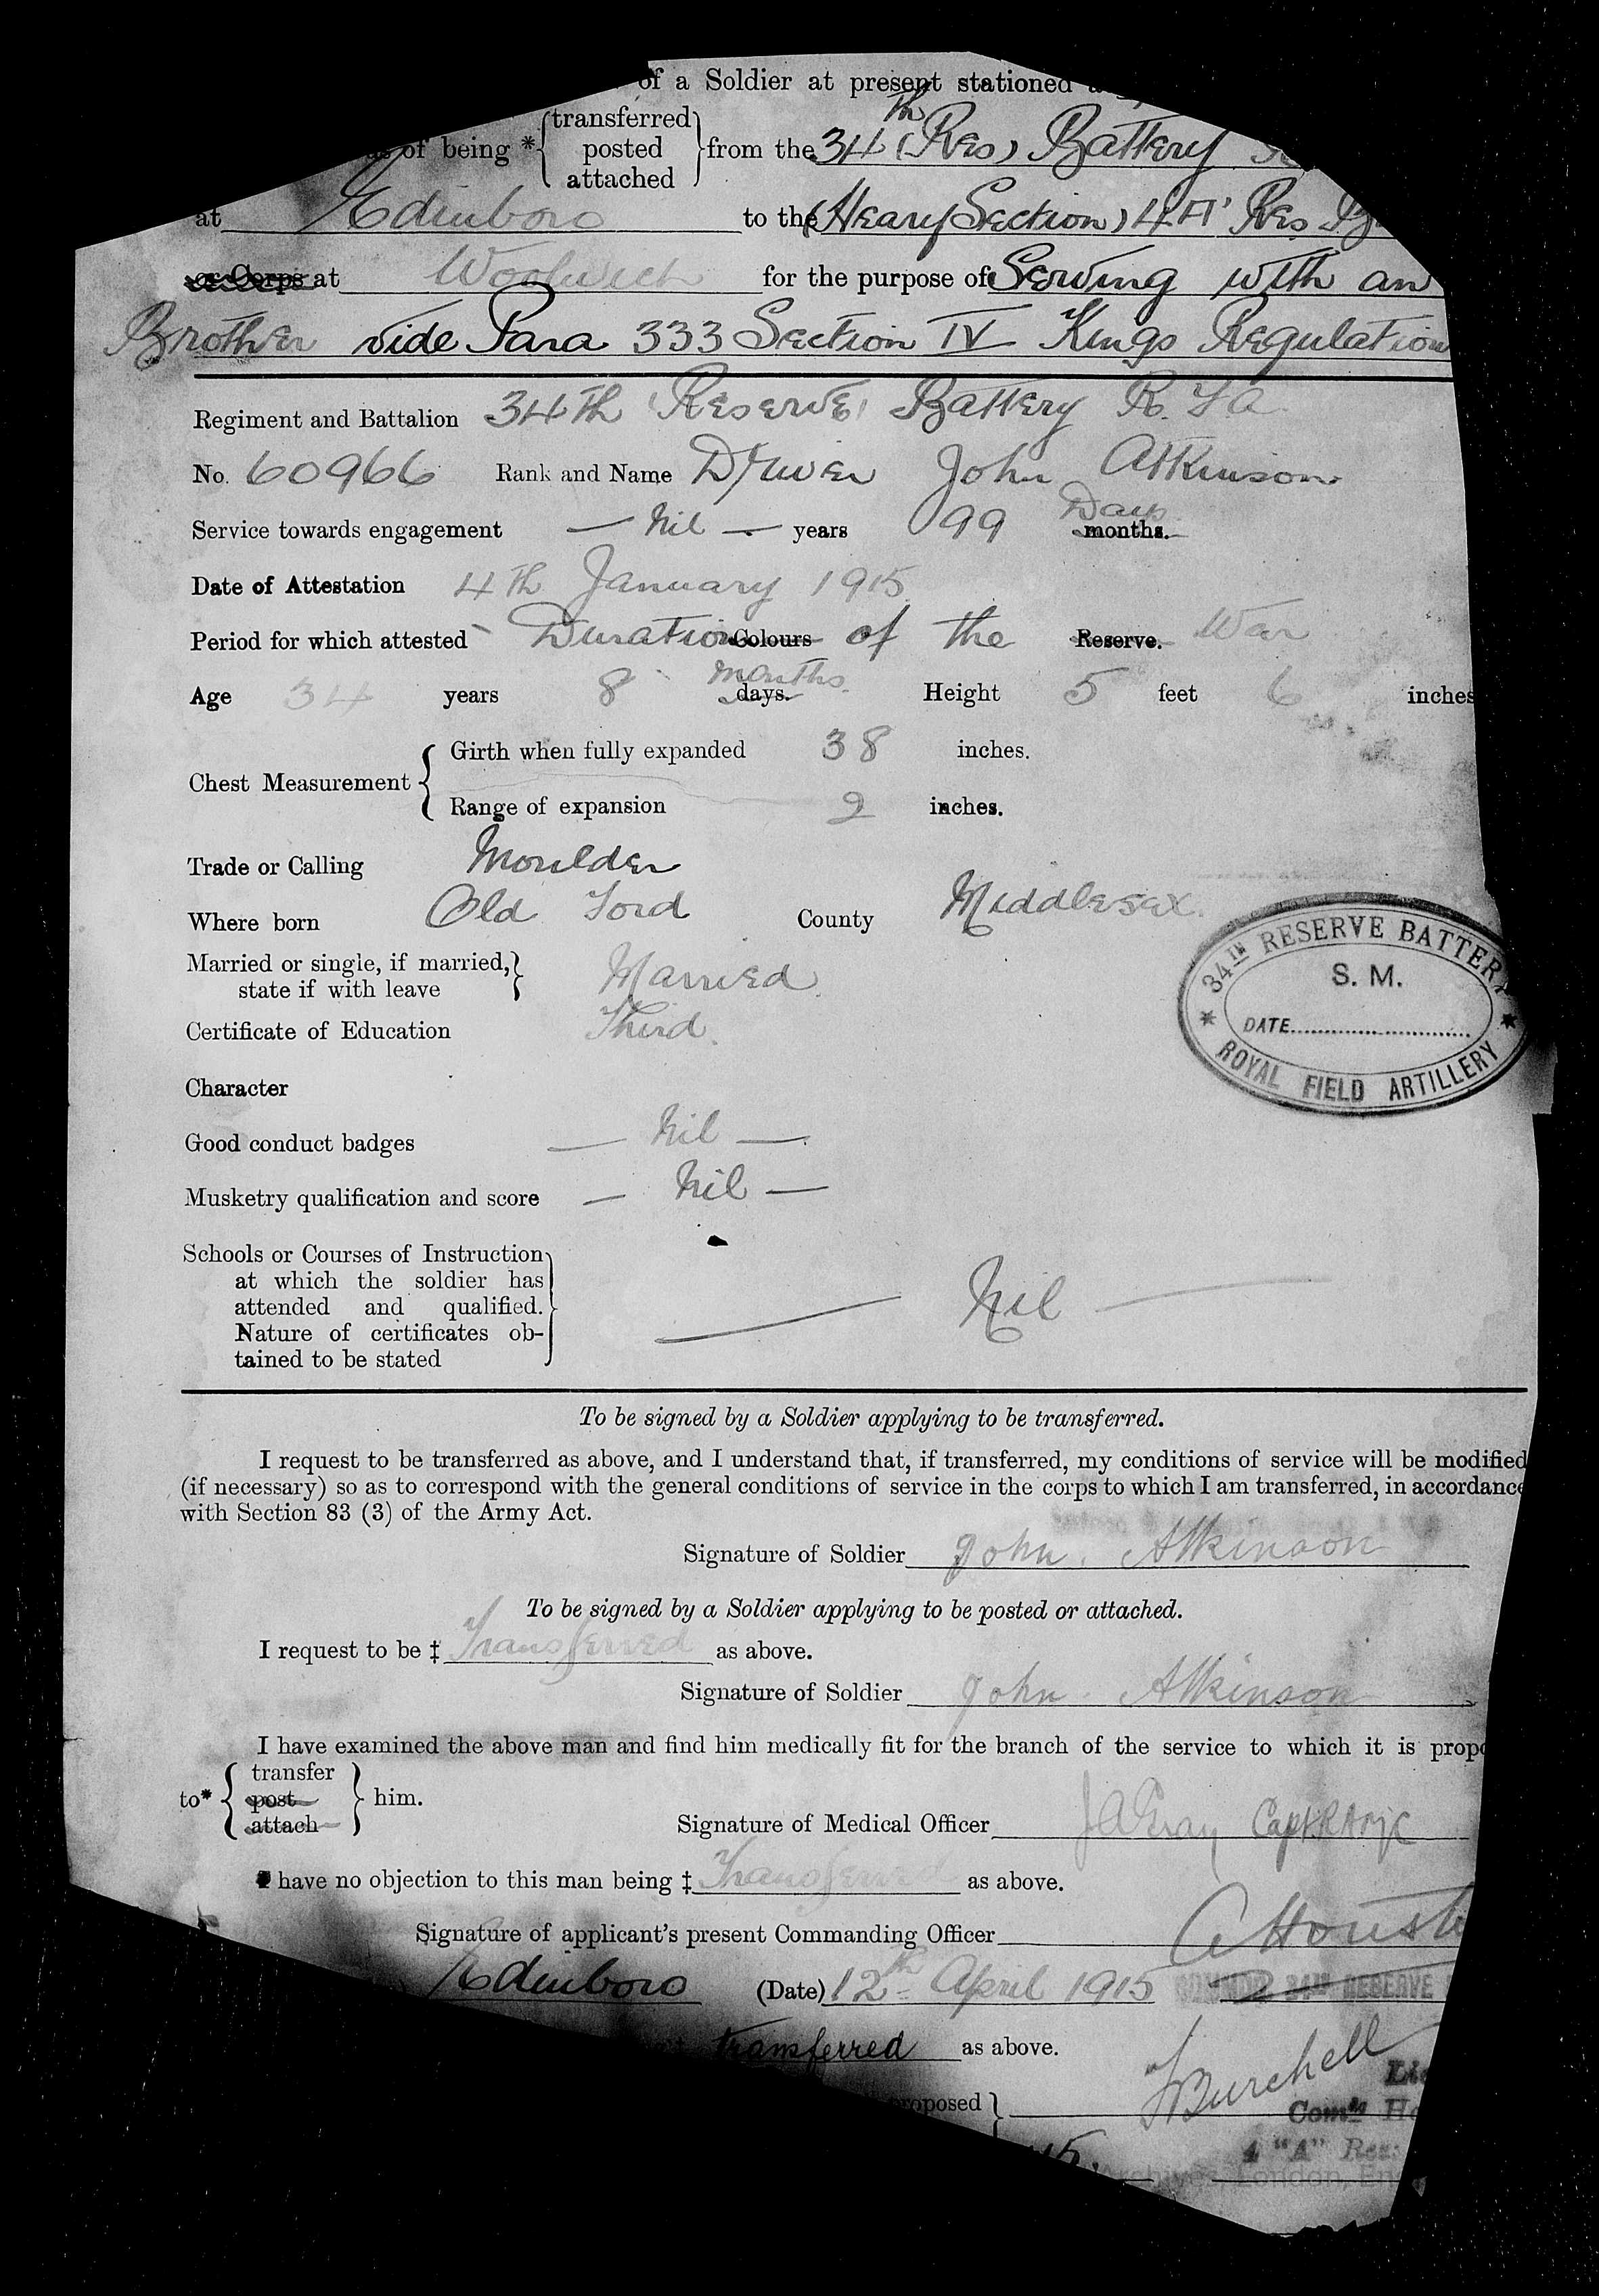 of a Soldier at present stationed
of being * transferred posted attached from the 34th (Res) Battery
at Edinboro to the (Heavy Section) 4 "A" Res
or Corps at Woolwich for the purpose of Serving with an
Brother vide Para 333 Section IV Kings Regulation
Regiment and Battalion 34th (Reserve) Battery R.F.A.
No. 60966 Rank and Name Driver John Atkinson
Service towards engagement — Nil — years 99 Days months.
Date of Attestation 4th January 1915
Period for which attested Duration Colours of the Reserve. War
Age 34 years 8 months days. Height 5 feet 6 inches
Chest Measurement
Girth when fully expanded 38 inches.
Range of expansion 2 inches.
Trade or Calling Moulder
Where born Old Ford County Middlesex.
Married or single, if married,
state if with leave Married
Certificate of Education Third.
Character
Good conduct badges — Nil —
Musketry qualification and score — Nil —
34TH RESERVE BATTERY
S. M.
DATE
ROYAL FIELD ARTILLERY
Schools or Courses of Instruction
at which the soldier has
attended and qualified.
Nature of certificates ob-
tained to be stated
Nil
To be signed by a Soldier applying to be transferred.
I request to be transferred as above, and I understand that, if transferred, my conditions of service will be modified
(if necessary) so as to correspond with the general conditions of service in the corps to which I am transferred, in accordance
with Section 83 (3) of the Army Act.
Signature of Soldier John Atkinson
To be signed by a Soldier applying to be posted or attached.
I request to be ‡ Transferred as above.
Signature of Soldier John Atkinson
I have examined the above man and find him medically fit for the branch of the service to which it is propo
to* transfer post attach him.
Signature of Medical Officer JA Gray Capt RAMC
I have no objection to this man being ‡ Transferred as above.
Signature of applicant's present Commanding Officer
Edinboro (Date) 12th April 1915 34TH RESERVE
transferred as above.
proposed Burchell
Comdg
4 "A" Res:
London, En